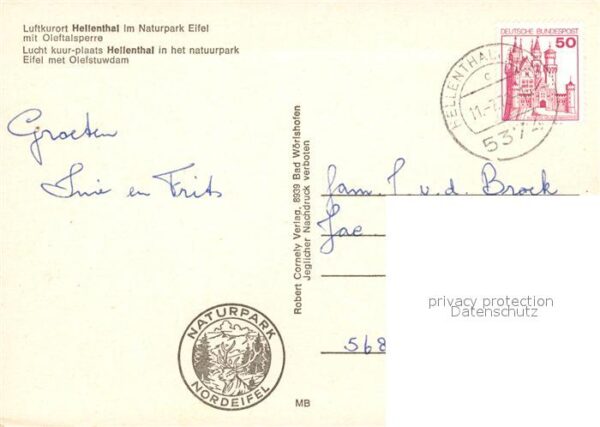 Luftkurort Hellenthal im Naturpark Eifel
mit Oleftalsperre
Lucht kuur-plaats Hellenthal in het natuurpark
Eifel met Olefstuwdam
DEUTSCHE BUNDESPOST
50
HELLENTHAL
c
11.-7.7
5374
Groeten
en Frits
Robert Cornely Verlag, 8939 Bad Wörishofen
Jeglicher Nachdruck verboten
fam. J v.d. Broek
Jac.
568
privacy protection
Datenschutz
NATURPARK
NORDEIFEL
MB